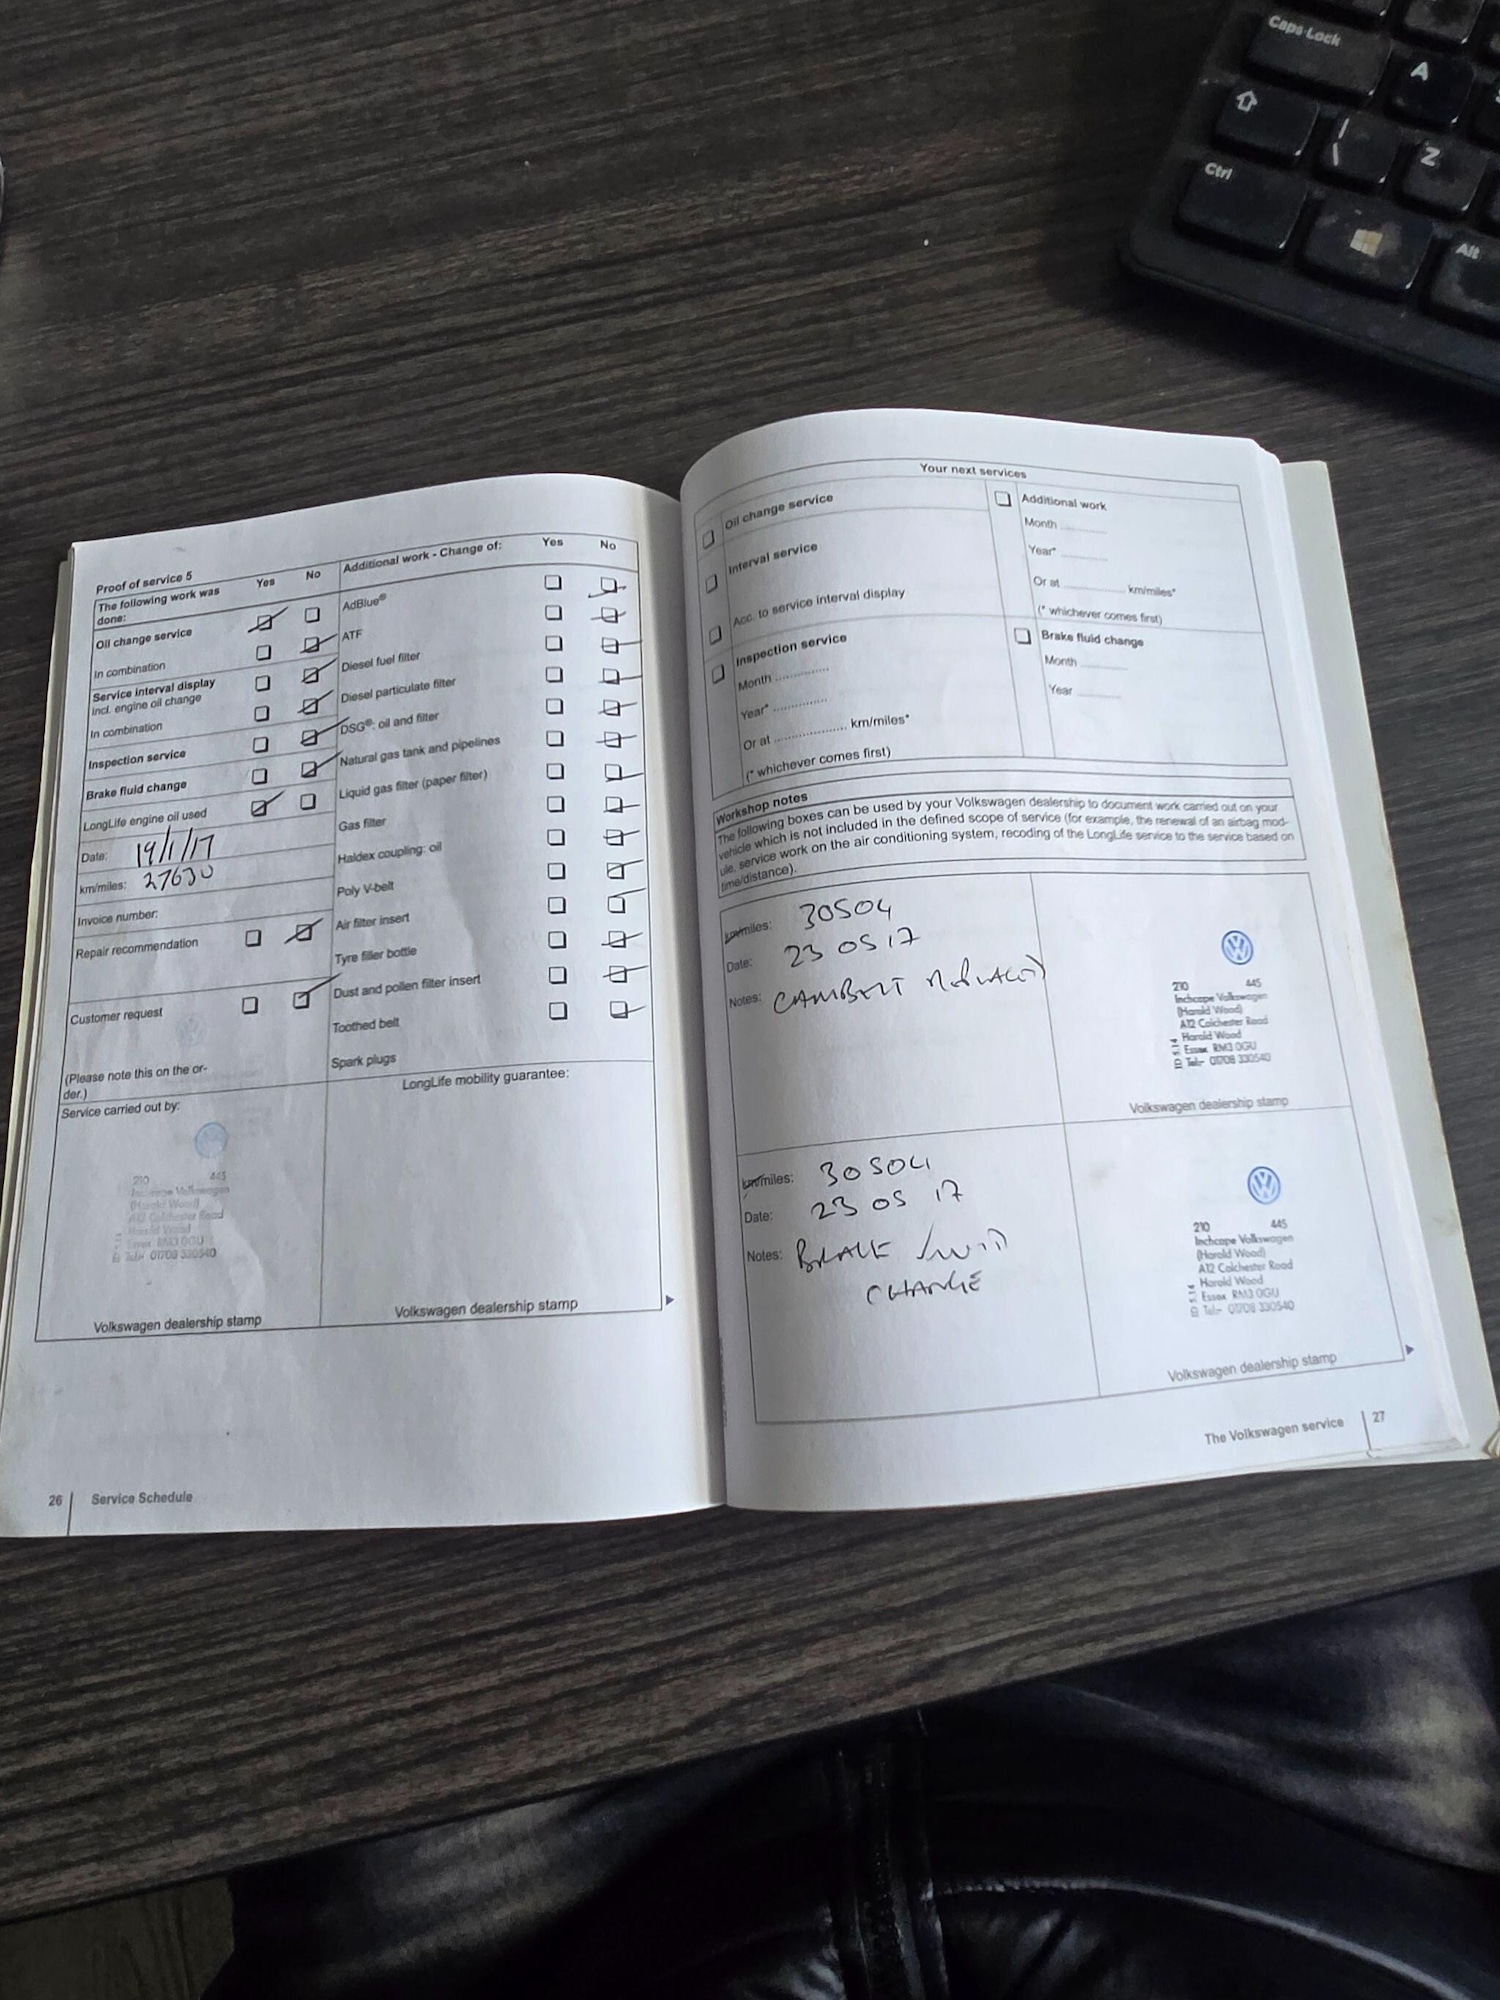 Caps Lock
A
Z
Ctrl
Alt
Proof of service 5
The following work was
done:
Yes
No
Oil change service
In combination
Service interval display
incl. engine oil change
In combination
Inspection service
Brake fluid change
LongLife engine oil used
Date: 19/1/17
km/miles: 27630
Invoice number:
Repair recommendation
Customer request
(Please note this on the or-
der.)
Service carried out by:
210 445
Inchcape Volkswagen
(Harold Wood)
A12 Colchester Road
Harold Wood
Essex RM3 0GU
Tel:- 01708 330540
Volkswagen dealership stamp
Additional work - Change of:
Yes
No
AdBlue®
ATF
Diesel fuel filter
Diesel particulate filter
DSG®: oil and filter
Natural gas tank and pipelines
Liquid gas filter (paper filter)
Gas filter
Haldex coupling: oil
Poly V-belt
Air filter insert
Tyre filler bottle
Dust and pollen filter insert
Toothed belt
Spark plugs
LongLife mobility guarantee:
Volkswagen dealership stamp
26 Service Schedule
Your next services
Oil change service
Interval service
Acc. to service interval display
Inspection service
Month ..............
Year* ..............
Or at .................. km/miles*
(* whichever comes first)
Additional work
Month ............
Year* ............
Or at ................ km/miles*
(* whichever comes first)
Brake fluid change
Month ............
Year ............
Workshop notes
The following boxes can be used by your Volkswagen dealership to document work carried out on your
vehicle which is not included in the defined scope of service (for example, the renewal of an airbag mod-
ule, service work on the air conditioning system, recoding of the LongLife service to the service based on
time/distance).
km/miles: 30504
Date: 23 05 17
Notes: CAMBELT REPLACED
210 445
Inchcape Volkswagen
(Harold Wood)
A12 Colchester Road
Harold Wood
Essex RM3 0GU
Tel:- 01708 330540
Volkswagen dealership stamp
km/miles: 30504
Date: 23 05 17
Notes: BRAKE FLUID
CHANGE
210 445
Inchcape Volkswagen
(Harold Wood)
A12 Colchester Road
Harold Wood
Essex RM3 0GU
Tel:- 01708 330540
Volkswagen dealership stamp
The Volkswagen service 27